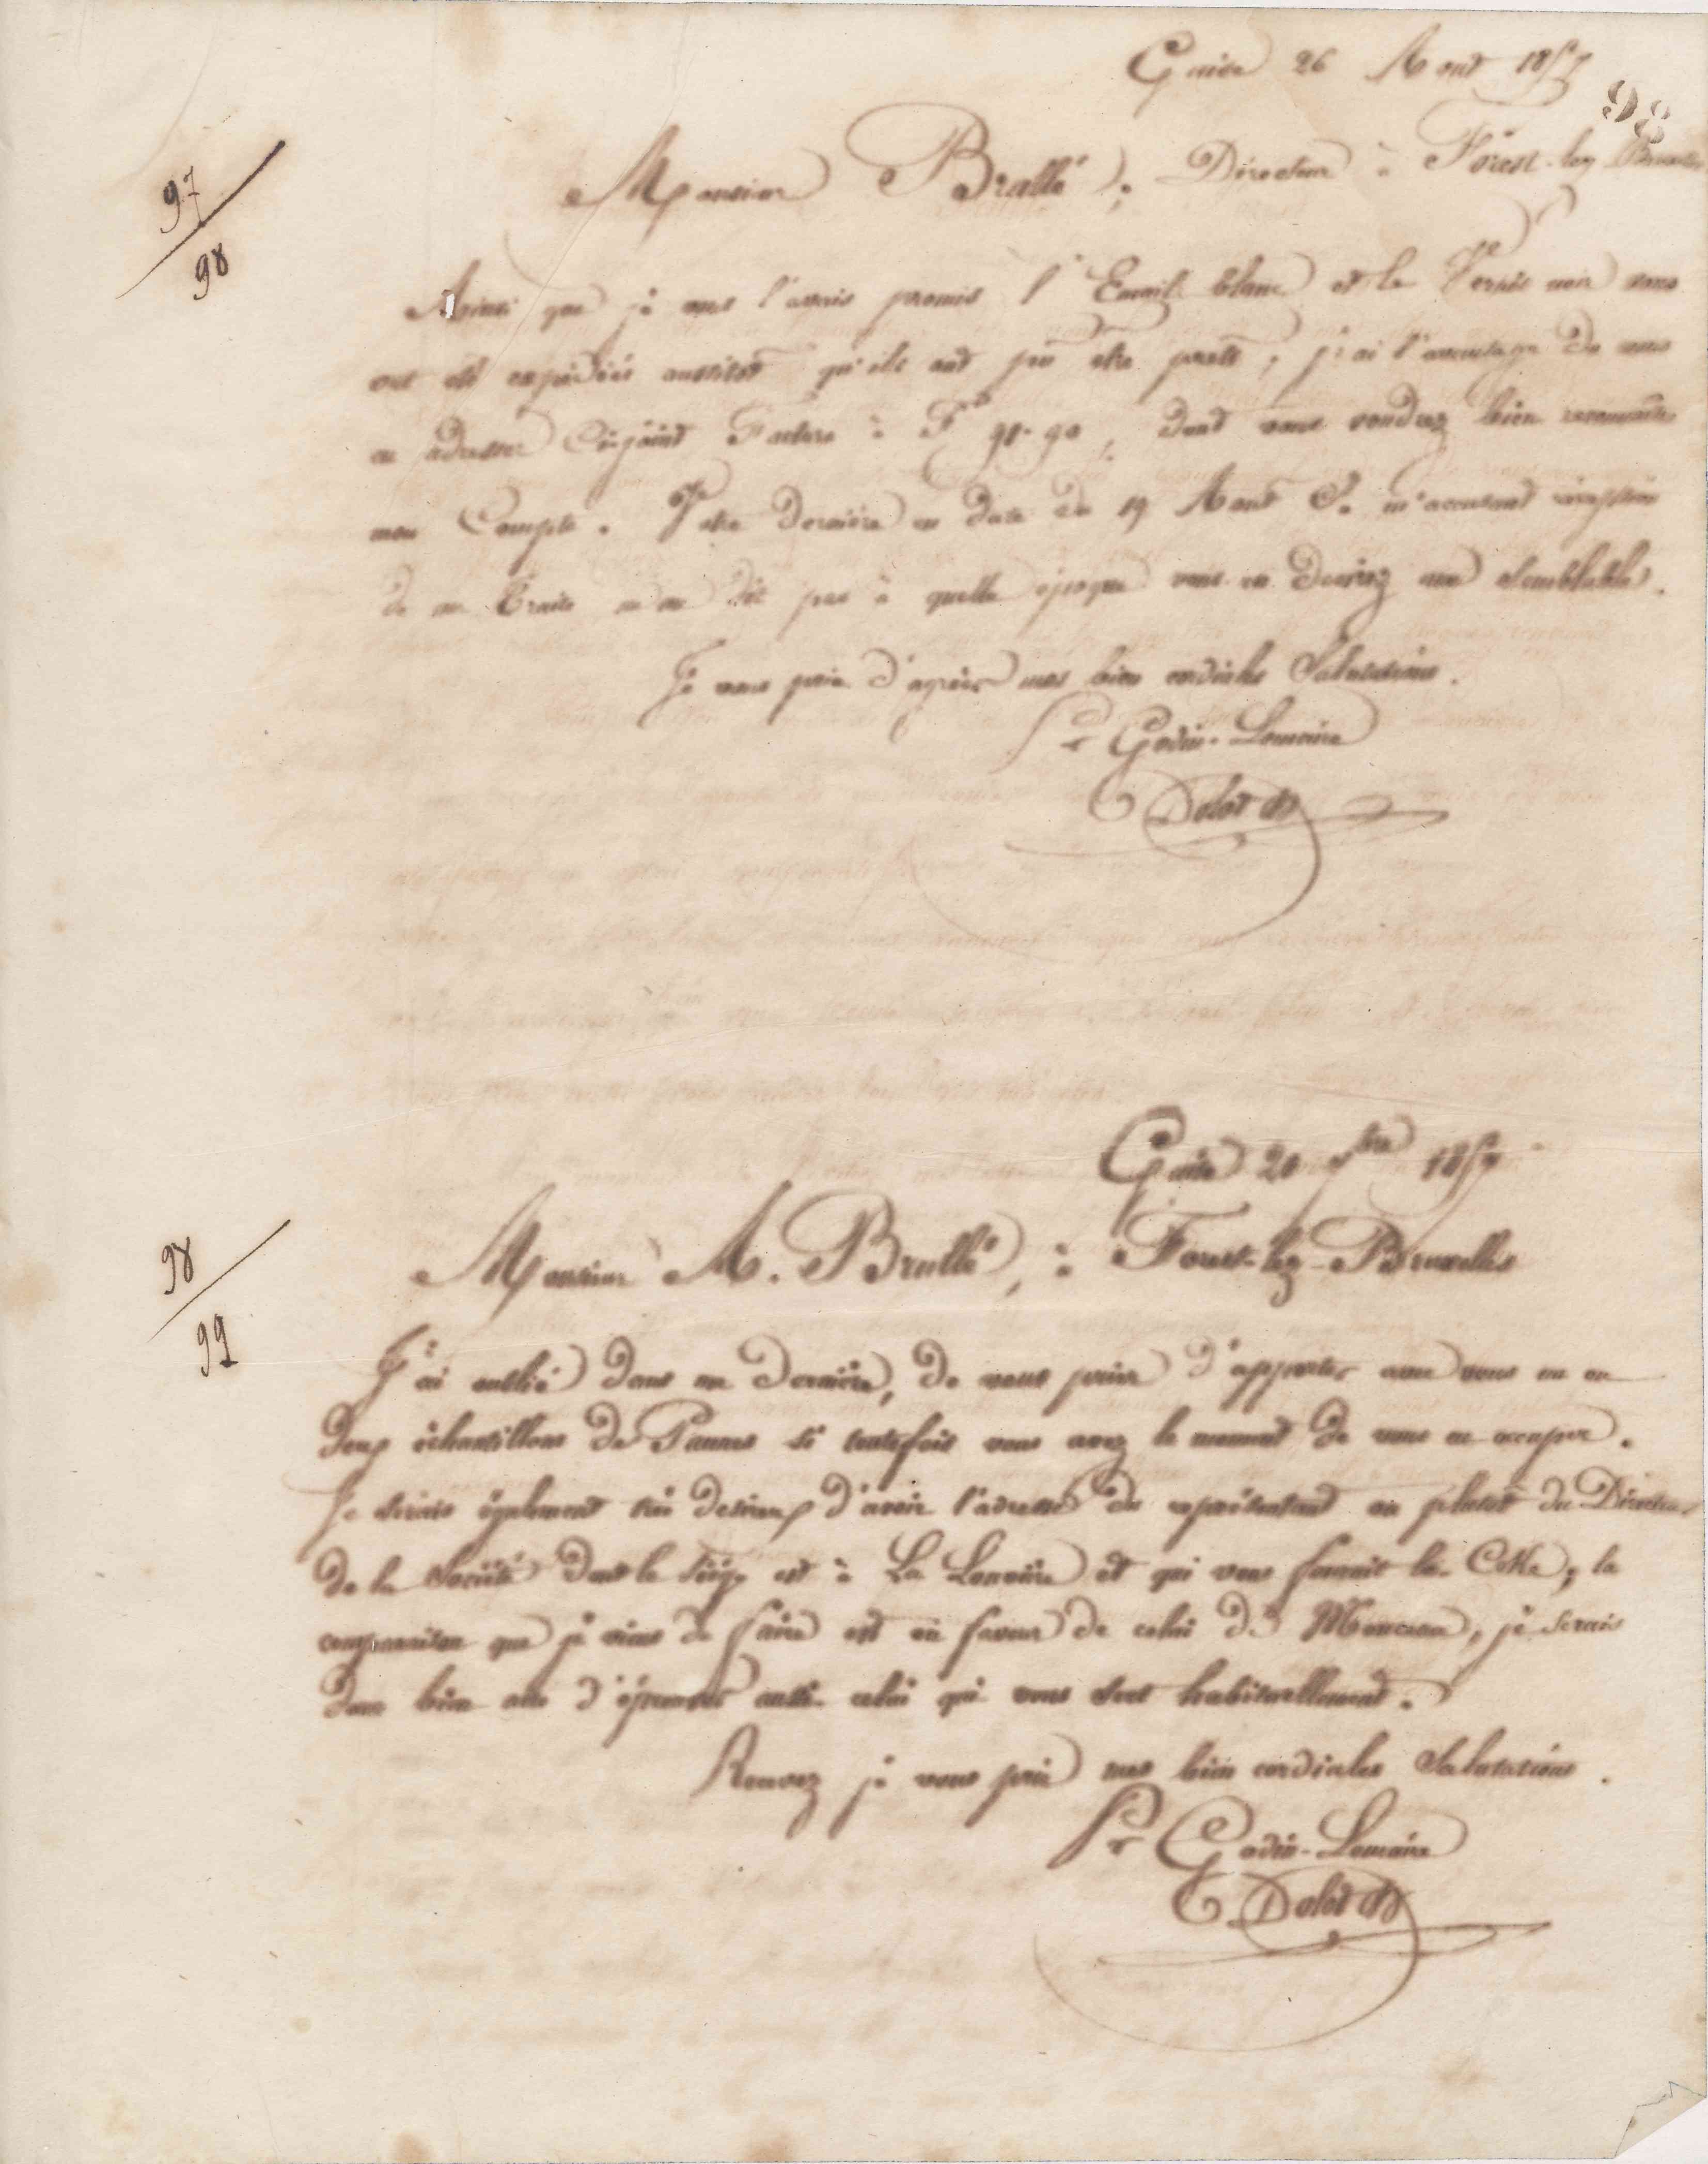 Guise 26 Aout 1857
98
Monsieur Brullé, Directeur à Forest-lez Bruxelles
97
98
Ainsi que je vous l'avais promis l'Email blanc et le Vernis noir vous
ont été expédiés aussitôt qu'ils ont pu être prets, j'ai l'avantage de vous
en adresser Cijoint Facture à F 98.90, dont vous voudrez bien reconnaitre
mon Compte. Votre dernière en date du 19 Aout m'accusant réception
de ma Traite ne me dit pas à quelle époque vous en desirez une semblable.
Je vous prie d'agréer mes bien cordiales Salutations.
Pr Godin-Lemaire
Delot
Guise 21 1857
98
99
Monsieur A. Brullé, à Forest-lez-Bruxelles
J'ai oublié dans ma dernière, de vous prier d'apporter avec vous un ou
deux échantillons de Pannes si toutefois vous avez le moment de vous en occuper.
Je serais également très desireux d'avoir l'adresse du représentant ou plutot du Directeur
de la Société dont le siège est à La Louvière et qui vous fournit le Coke; la
comparaison que je viens de faire est en faveur de celui de Monceau, je serais
donc bien aise d'éprouver aussi celui qui vous sert habituellement.
Recevez je vous prie mes bien cordiales Salutations.
Pr Godin-Lemaire
Delot